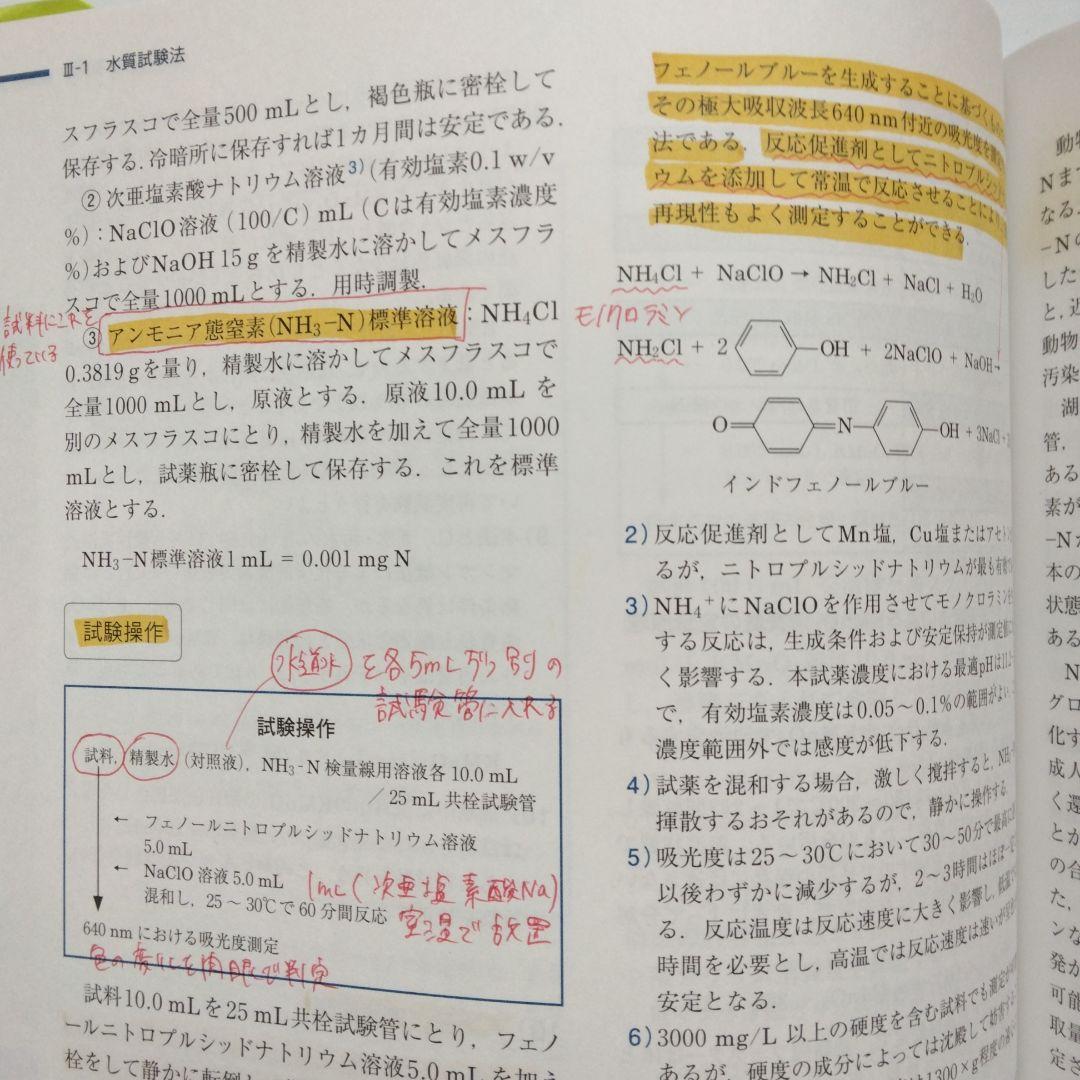 Ⅲ-1 水質試験法
スフラスコで全量500 mLとし，褐色瓶に密栓して
保存する．冷暗所に保存すれば1カ月間は安定である．
② 次亜塩素酸ナトリウム溶液3)（有効塩素0.1 w/v
%）：NaClO溶液（100/C）mL（Cは有効塩素濃度
%）およびNaOH 15 gを精製水に溶かしてメスフラ
スコで全量1000 mLとする．用時調製．
試料に
使っている
③ アンモニア態窒素(NH₃-N)標準溶液：NH₄Cl
0.3819 gを量り，精製水に溶かしてメスフラスコで
全量1000 mLとし，原液とする．原液10.0 mL を
別のメスフラスコにとり，精製水を加えて全量1000
mLとし，試薬瓶に密栓して保存する．これを標準
溶液とする．
NH₃-N標準溶液1 mL = 0.001 mg N
試験操作
水道水を各5mLずつ別の
試験管に入れる
試験操作
試料，精製水（対照液），NH₃-N 検量線用溶液各 10.0 mL
／25 mL 共栓試験管
← フェノールニトロプルシッドナトリウム溶液
5.0 mL
← NaClO 溶液 5.0 mL
1mL（次亜塩素酸Na）
混和し，25～30℃で 60 分間反応
室温で放置
640 nm における吸光度測定
色の変化を肉眼で判定
試料10.0 mLを25 mL共栓試験管にとり，フェノ
ールニトロプルシッドナトリウム溶液5.0 mLを加え
栓をして静かに転倒し
フェノールブルーを生成することに基づくもの
その極大吸収波長640 nm付近の吸光度を測定
法である．反応促進剤としてニトロプルシッ
ウムを添加して常温で反応させることにより
再現性もよく測定することができる．
NH₄Cl + NaClO → NH₂Cl + NaCl + H₂O
モノクロラミン
NH₂Cl + 2 -OH + 2NaClO + NaOH→
O= =N- -OH + 3NaCl +
インドフェノールブルー
2）反応促進剤としてMn塩，Cu塩またはアセト
るが，ニトロプルシッドナトリウムが最も有効
3）NH₄⁺にNaClOを作用させてモノクロラミン
する反応は，生成条件および安定保持が測定値に
く影響する．本試薬濃度における最適pHは11.2
で，有効塩素濃度は0.05～0.1%の範囲がよい．
濃度範囲外では感度が低下する．
4）試薬を混和する場合，激しく撹拌すると，NH₃
揮散するおそれがあるので，静かに操作する．
5）吸光度は25～30℃において30～50分で最高に
以後わずかに減少するが，2～3時間はほぼ一定
る．反応温度は反応速度に大きく影響し，低温で
時間を必要とし，高温では反応速度は速いが
安定となる．
6）3000 mg/L 以上の硬度を含む試料でも測定
あるが，硬度の成分によっては沈殿して妨害する
1300×g程度の
動物
Nま
なる
-Nの
した
と，近
動物
汚染
湖
管．
ある
素が
-Nが
本の
状態
ある
N
グロ
化す
成人
く還
とが
の合
た，
ンな
発が
可能
取量
定さ